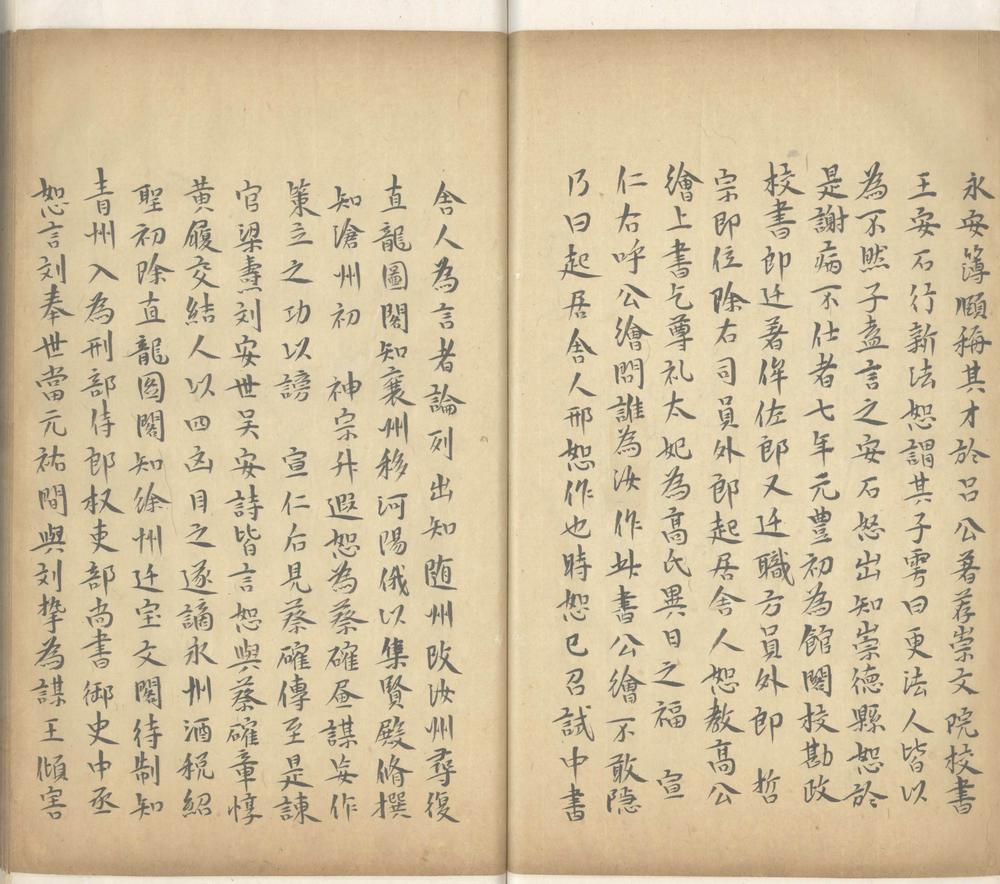 永安簿頋稱其才於吕公著荐崇文院校書
王安石行新法恕謂其子雱曰更法人皆以
為不然子盍言之安石怒出知崇德縣恕於
是謝病不仕者七年元豊初為館閣校勘攺
校書郎迁著作佐郎又迁職方員外郎　哲
宗即位除右司員外郎起居舍人恕教高公
繪上書乞尊礼太妃為高氏異日之福　宣
仁右呼公繪問誰為汝作此書公繪不敢隐
乃曰起居舍人邢恕作也時恕已召試中書
舍人為言者論列出知随州攺汝州尋復
直龍圖閣知襄州移河陽俄以集賢殿脩撰
知滄州初　神宗升遐恕為蔡確畫謀妄作
策立之功以謗　宣仁后見蔡確傳至是諫
官梁燾刘安世吴安詩皆言恕與蔡確章惇
黄履交結人以四凶目之遂謫永州酒税紹
聖初除直龍圖閣知徐州迁宝文閣待制知
青州入為刑部侍郎权吏部尚書御史中丞
恕言刘奉世當元祐間與刘摯為謀王傾害